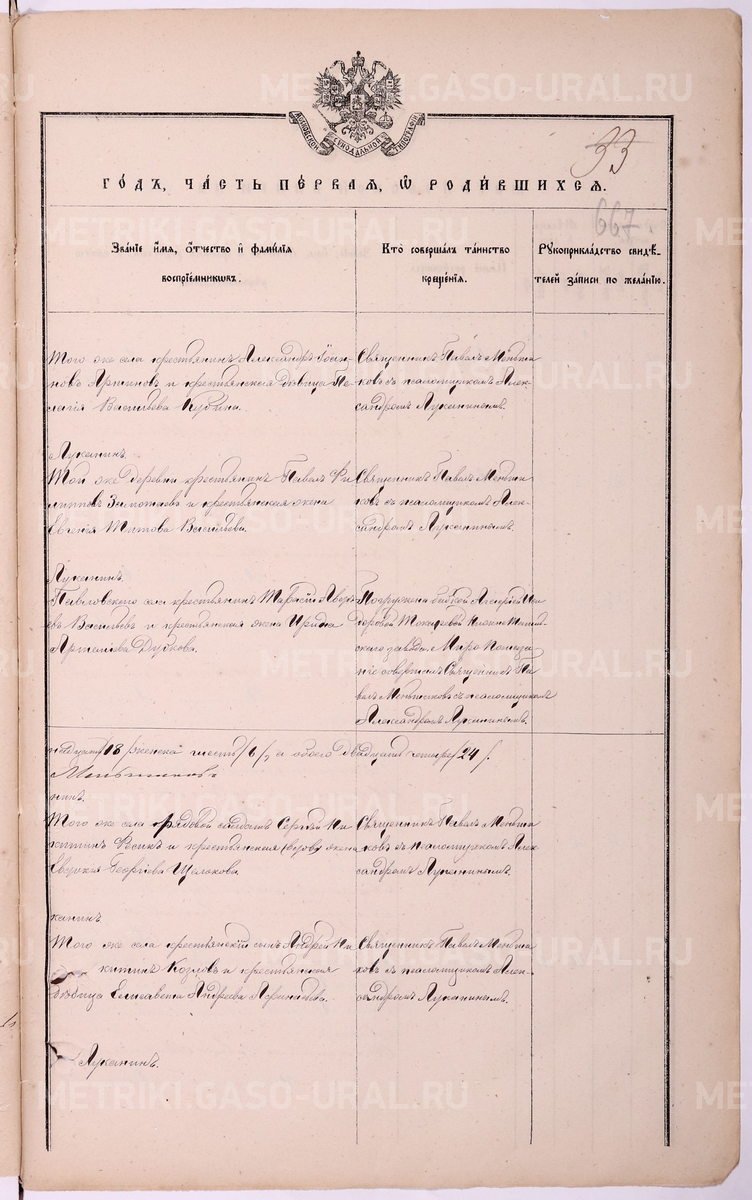 МОСКОВСКОЙ СѴНОДАЛЬНОЙ ТИПОГРАФІИ
33
ГО́ДЪ, ЧА́СТЬ ПЕ́РВАЯ, Ѽ РОДИ́ВШИХСЯ.
667.
Зва́нїе и҆́мя, ѻ҆́тчество и҆ фами́лїя
воспрїе́мникѡвъ.
Кто̀ соверша́лъ та́инство
креще́нїя.
Рꙋкоприкла́дство свидѣ́-
телей за́писи по жела́нїю.
Того же села крестьянинъ Александръ Іоан-
новъ и крестьянская дѣвица Пе-
лагія Васильева
Священникъ Павелъ Меньши-
ковъ съ псаломщикомъ Алек-
сандромъ Луканинымъ.
Луканинъ.
Той же деревни крестьянинъ Павелъ Фи-
липповъ и крестьянская жена
Евгенія Титова Васильева
Священникъ Павелъ Меньши-
ковъ съ псаломщикомъ Алек-
сандромъ Луканинымъ.
Луканинъ.
Павловского села крестьянинъ Тарасій
Васильевъ и крестьянская жена Ирина
Артемьева Дубкова.
Погружена бабкой
завода. Миро Помаза-
ніе совершилъ Священникъ Па-
велъ Меньшиковъ съ псаломщикомъ
Александромъ Луканинымъ.
/18/ женска шесть /6/, а обоего двадцать четыре /24/.
Меньшиковъ
нинъ.
Того же села рядовой солдатъ Сергѣй Ни-
китинъ и крестьянская жена
Евдокія Георгіева Щелокова
Священникъ Павелъ Меньши-
ковъ съ псаломщикомъ Алек-
сандромъ Луканинымъ.
канинъ.
Того же села крестьянскій сынъ Андрей Ни-
китинъ Козловъ и крестьянская
дѣвица Елисавета Андреева
Священникъ Павелъ Меньши-
ковъ съ псаломщикомъ Алек-
сандромъ Луканинымъ.
Луканинъ.
METRIKI.GASO-URAL.RU